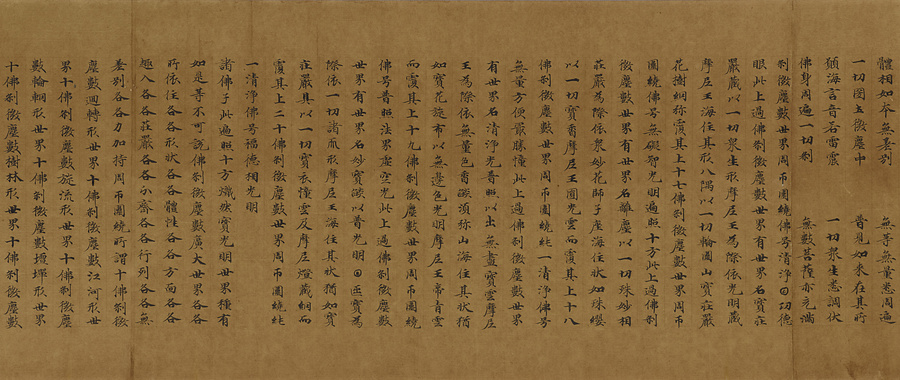 體相如本無差別 無等無量悉周遍
一切國土微塵中 普見如來在其所
猶海言音若雷震 一切衆生悉調伏
佛身周遍一切剎 無數菩薩亦充滿
剎微塵數世界周帀圍繞佛号清淨目功德
眼此上過佛剎微塵數世界有世界名寶莊
嚴藏以一切衆生形摩尼王為際依光明藏
摩尼王海住其形八隅以一切輪圍山寶莊嚴
花樹網稱覆其上十七佛剎微塵數世界周帀
圍繞佛号無礙智光明遍照十方此上過佛剎
微塵數世界有世界名離塵以一切殊妙相
莊嚴為際依衆妙花師子座海住狀如珠纓
以一切寶香摩尼王圓光雲而覆其上十八
佛剎微塵數世界周帀圍繞純一清淨佛号
無量方便最勝幢此上過佛剎微塵數世界
有世界名清淨光普照以出無盡寶雲摩尼
王為際依無量色香焰須弥山海住其狀猶
如寶花旋布以無邊色光明摩尼王帝青雲
而覆其上十九佛剎微塵數世界周帀圍繞
佛号普照法界虛空光此上過佛剎微塵數
世界有世界名妙寶焰以普光明日匝寶為
際依一切諸天形摩尼王海住其狀猶如寶
莊嚴具以一切寶衣幢雲及摩尼燈藏網而
覆其上二十佛剎微塵數世界周帀圍繞純
一清淨佛号福德相光明
諸佛子此遍照十方熾然寶光明世界種有
如是等不可說佛剎微塵數廣大世界各各
所依住各各形狀各各體性各各方面各各
趣入各各莊嚴各各分齊各各行列各各無
差別各各力加持周帀圍繞所謂十佛剎微
塵數迴轉形世界十佛剎微塵數江河形世
界十佛剎微塵數旋流形世界十佛剎微塵
數輪輞形世界十佛剎微塵數壇墠形世界
十佛剎微塵數樹林形世界十佛剎微塵數